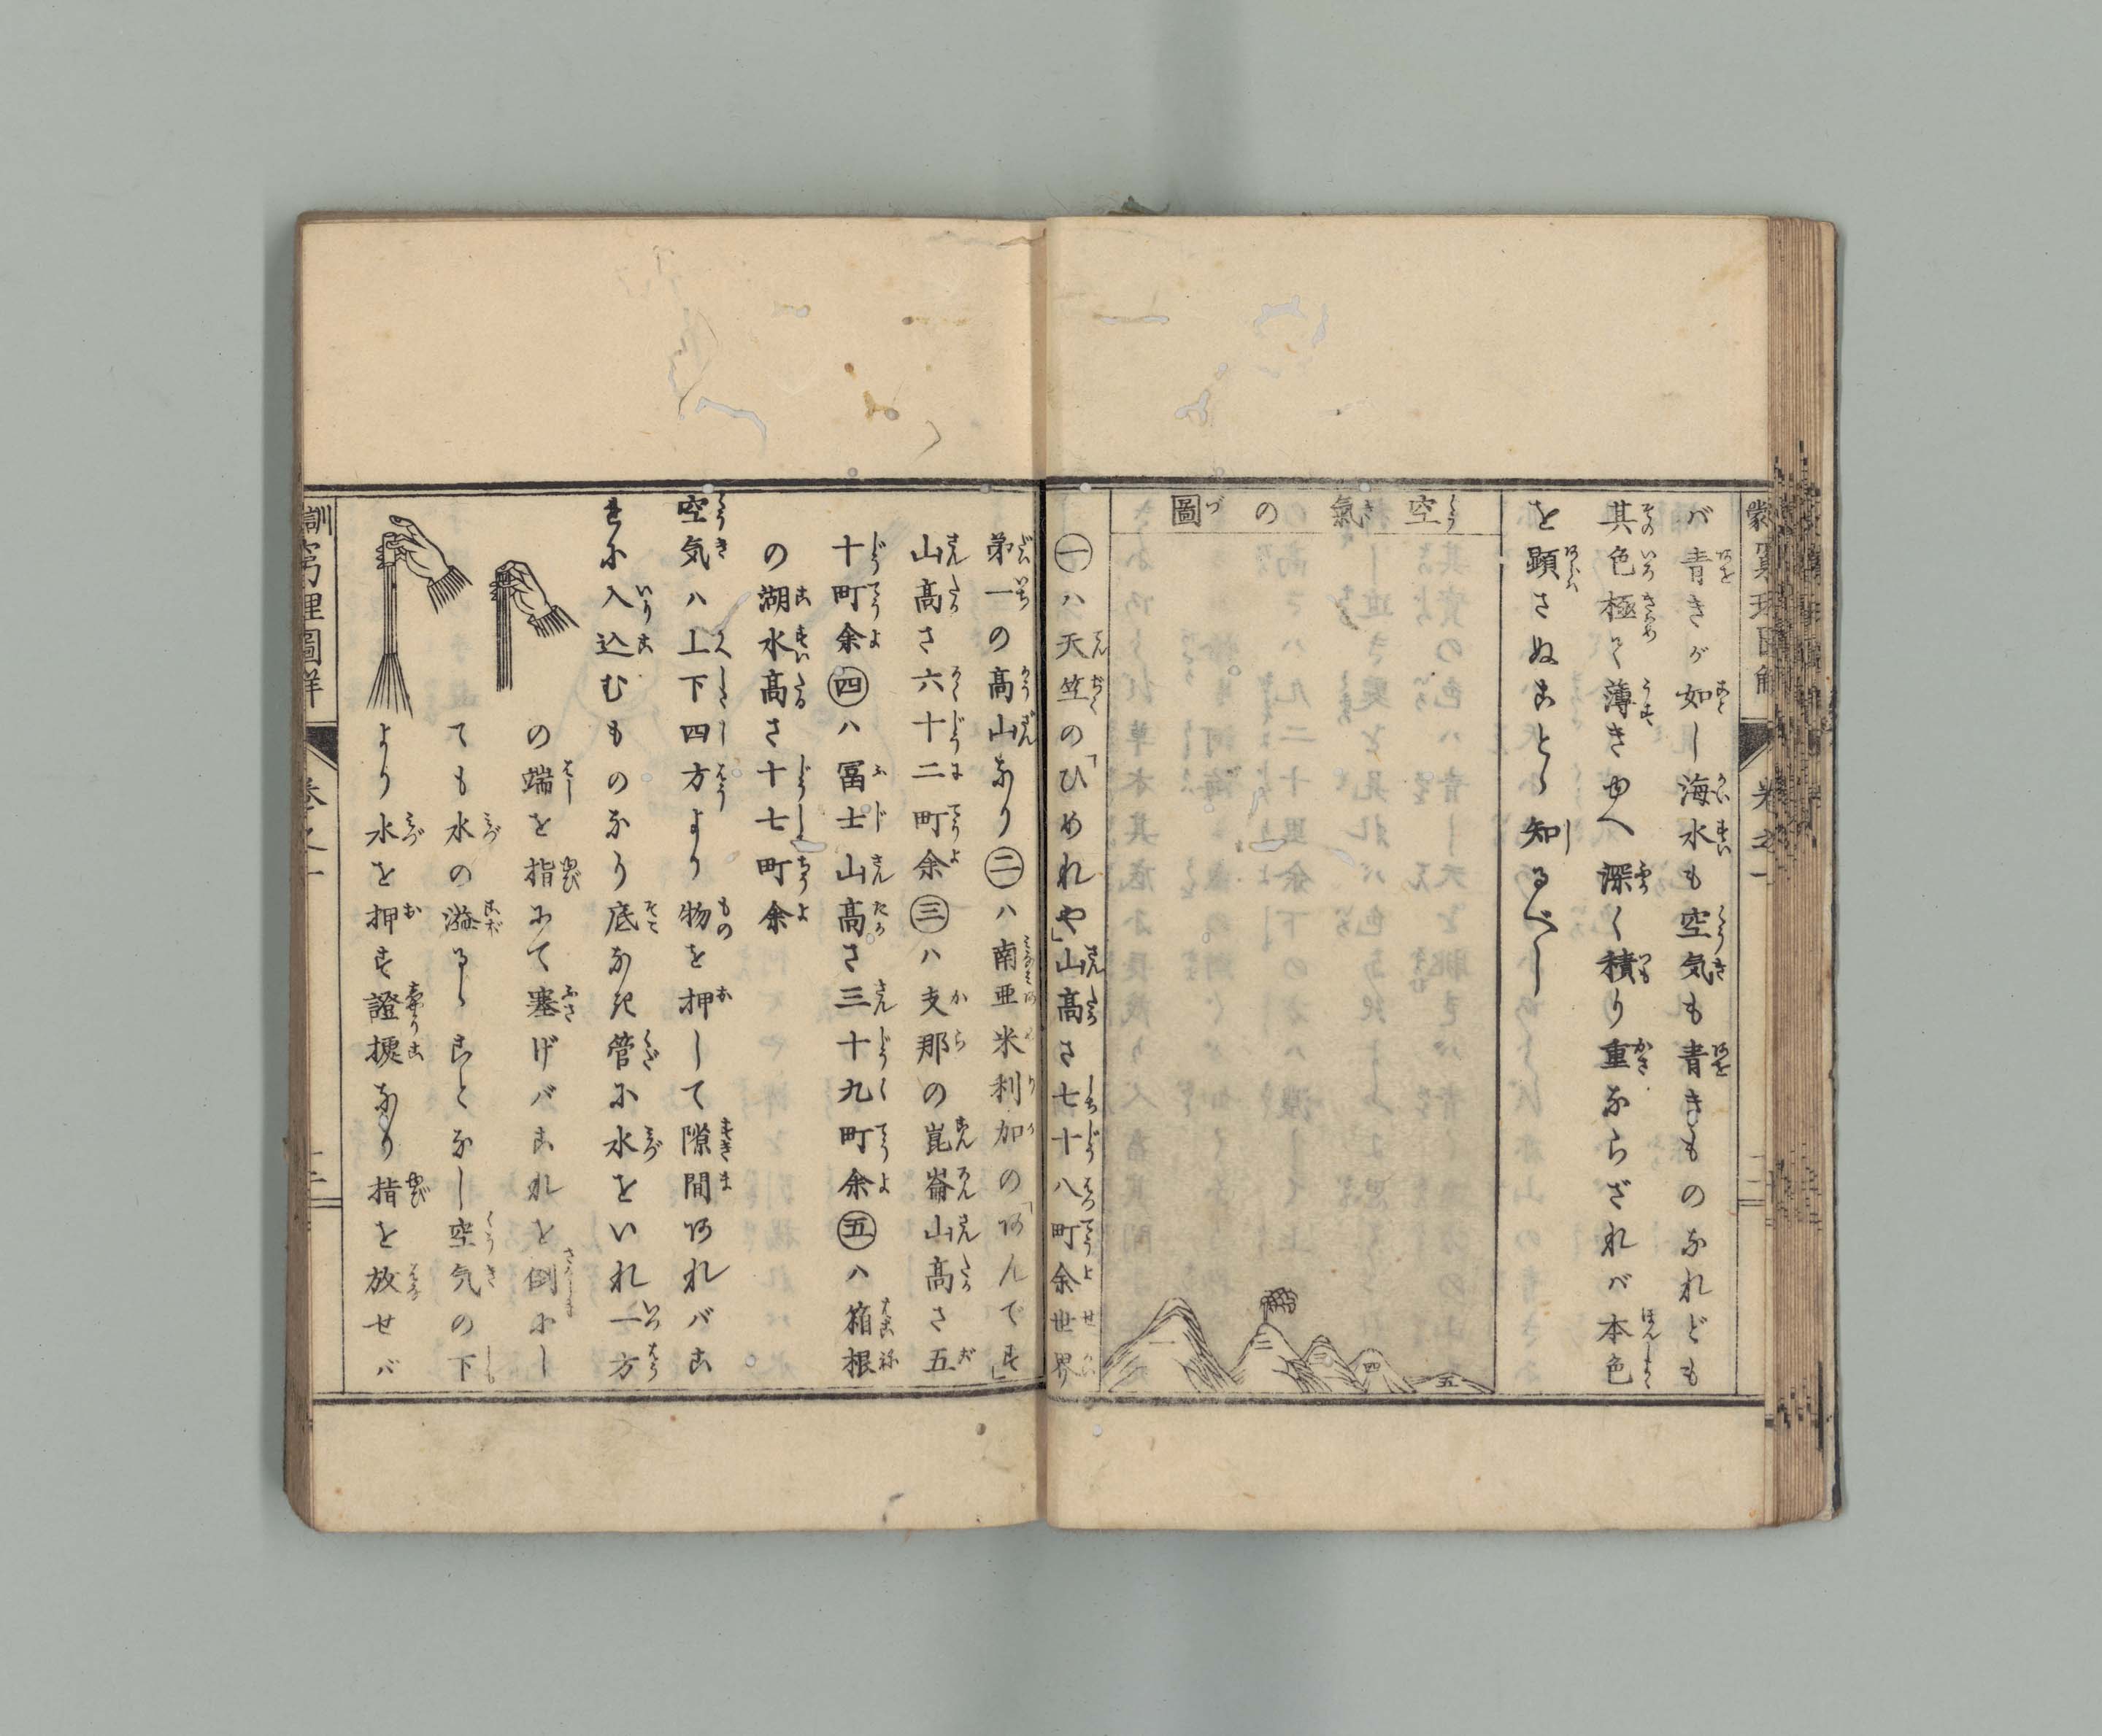 バ青きが如し海水も空気も青きものなれども
其色極て薄きゆへ深く積り重ならざれバ本色
を顕さぬことゝ知るべし
空氣の圖
一
二
三
四
五
㊀ハ天竺の「ひめれや」山高さ七十八町余世界
第一の高山なり㊁ハ南亜米利加の「あんです」
山高さ六十二町余㊂ハ支那の崑崙山高さ五
十町余㊃ハ冨士山高さ三十九町余㊄ハ箱根
の湖水高さ十七町余
空気ハ上下四方より物を押して隙間あれバこ
れに入込むものなり底なき管に水をいれ一方
の端を指にて塞げバこれを倒にし
ても水の溢るゝことなし空気の下
より水を押す證拠なり指を放せバ
訓
窮理圖解
巻之一